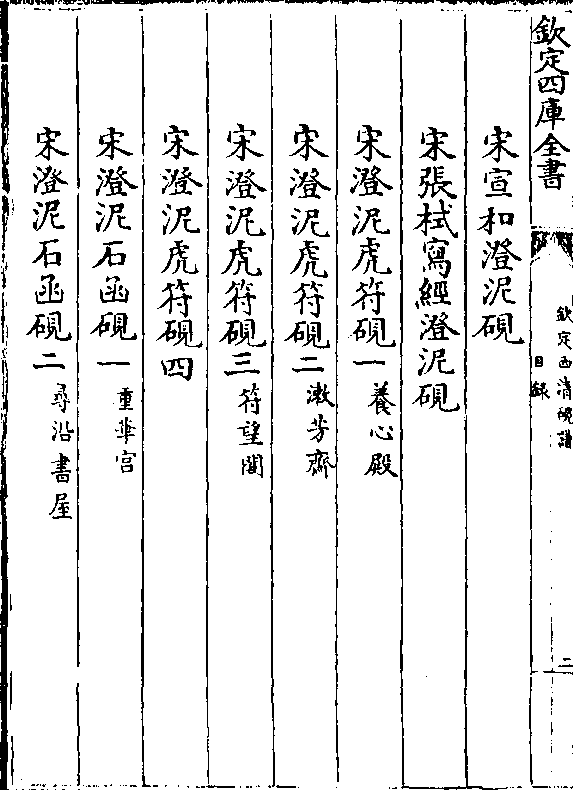 欽定四庫全書
欽定西清硯譜
目録
二
宋宣和澄泥硯
宋張栻寫經澄泥硯
宋澄泥虎符硯一 養心殿
宋澄泥虎符硯二 漱芳齋
宋澄泥虎符硯三 符望閣
宋澄泥虎符硯四
宋澄泥石函硯一 重華宮
宋澄泥石函硯二 尋沿書屋